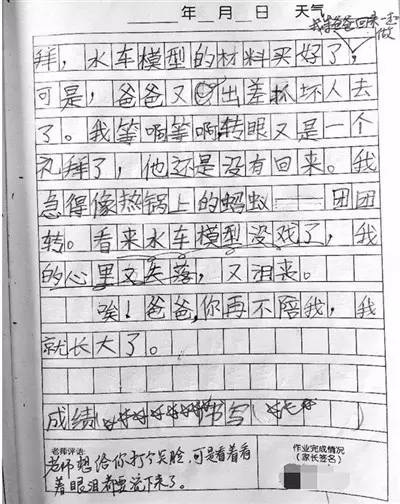 年 月 日 天气
我等爸爸回来一起做
拜，水车模型的材料买好了，
可是，爸爸又出差抓坏人去
了。我等啊等啊，转眼又是一个
礼拜了，他还是没有回来。我
急得像热锅上的蚂蚁——团团
转。看来水车模型没戏了，我
的心里又失落，又沮丧。
唉！爸爸，你再不陪我，我
就长大了。
成绩 书写
老师评语：
老师想给你打个笑脸，可是看着看
着眼泪都要流下来了。
作业完成情况
（家长签名）